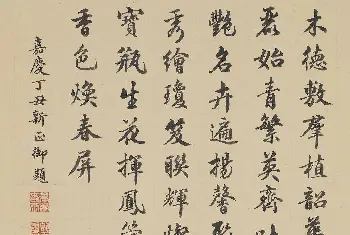 木德敷群植韶華
磊始青繁英齊吐
艷名卉遍揚馨聯
秀繪瓊笈聯輝燦
寶瓶生花揮鳳管
香色煥春屏
嘉慶丁丑新正御題